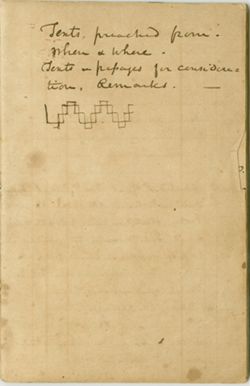 Texts, preached from.
When & Where.
Texts & passages for considera
tion, Remarks. —